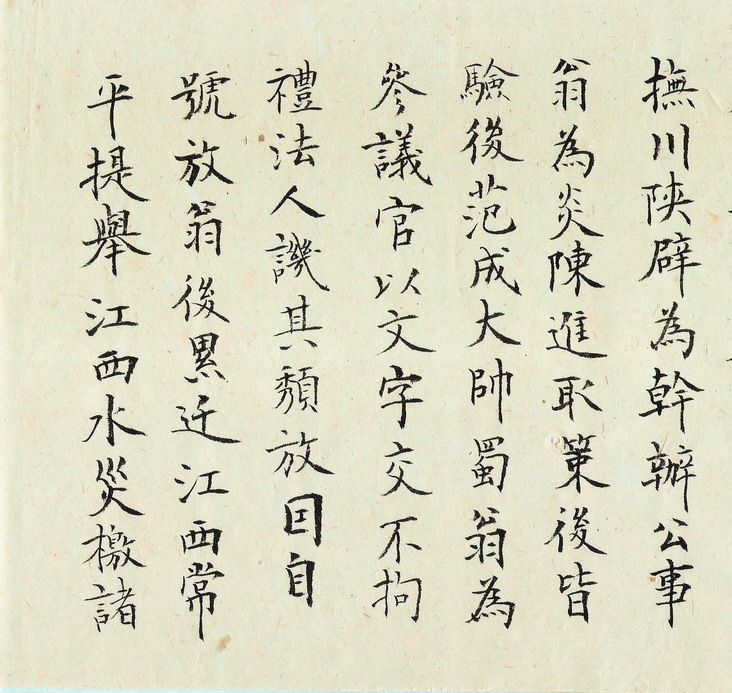 撫川陝辟為幹辦公事
翁為炎陳進取策後皆
驗後范成大帥蜀翁為
參議官以文字交不拘
禮法人譏其頹放因自
號放翁後累迁江西常
平提舉江西水災檄諸